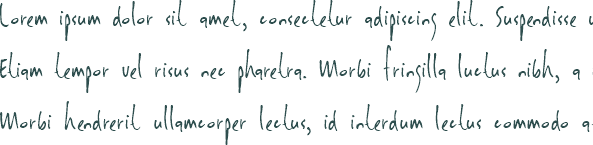 Lorem ipsum dolor sit amet, consectetur adipiscing elit. Suspendisse
Etiam tempor vel risus nec pharetra. Morbi fringilla luctus nibh, a
Morbi hendrerit ullamcorper lectus, id interdum lectus commodo a